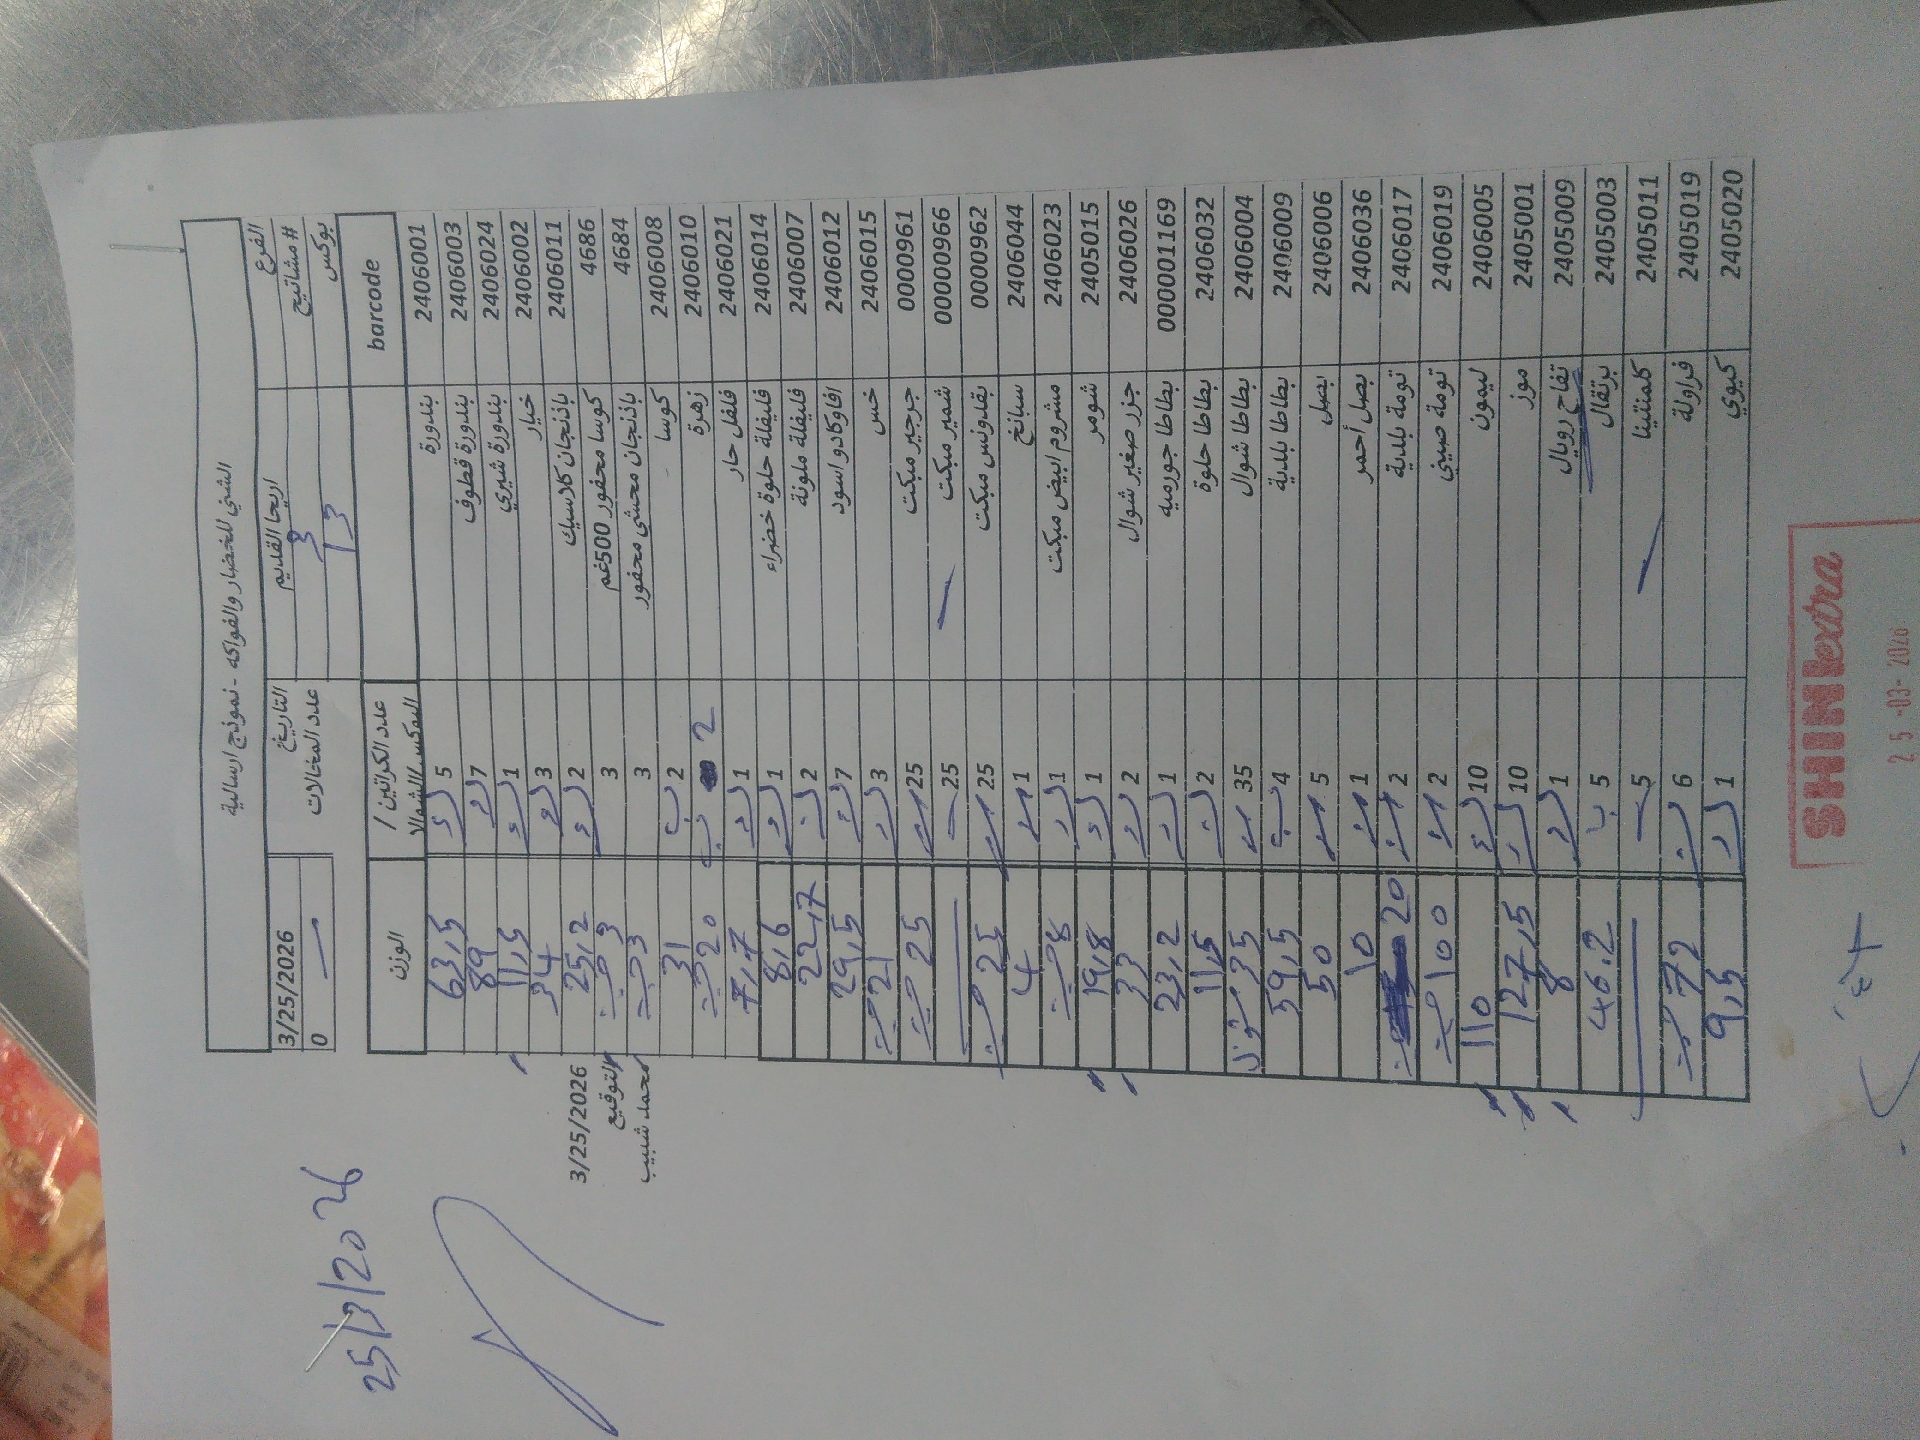 الشني للخضار والفواكه - نموذج ارسالية
الفرع اريحا القديم التاريخ 3/25/2026
#مشاتيح 3 عدد المخالات 0
بوكس 13
barcode عدد الكراتين / البوكس/الشوالا الوزن
2406001 بندورة 5 63,5
2406003 بندورة قطوف 7 89
2406024 بندورة شيري 1 11,5
2406002 خيار 3 34
2406011 باذنجان كلاسيك 2 25,2
4686 كوسا محفور 500غم 3 3
4684 باذنجان محشي محفور 3 3
2406008 كوسا 2 31
2406010 زهرة 2 20
2406021 فلفل حار 1 7,7
2406014 فليفلة حلوة خضراء 1 8,6
2406007 فليفلة ملونة 2 22,7
2406012 افاوكادو اسود 7 29,5
2406015 خس 3 21
0000961 جرجير مبكت 25 25
00000966 شمير مبكت 25
0000962 بقدونس مبكت 25 25
2406044 سبانخ 1 4
2406023 مشروم ابيض مبكت 1 8
2405015 شومر 1 19,8
2406026 جزر صغير شوال 2 33
000001169 بطاطا جورميه 1 23,2
2406032 بطاطا حلوة 2 11,5
2406004 بطاطا شوال 35 35 شوال
2406009 بطاطا بلدية 4 59,5
2406006 بصل 5 50
2406036 بصل أحمر 1 10
2406017 تومة بلدية 2 20
2406019 تومة صيني 2 100
2406005 ليمون 10 110
2405001 موز 10 127,5
2405009 تفاح رويال 1 8
2405003 برتقال 5 46.2
2405011 كلمنتينا 5
2405019 فراولة 6 72
2405020 كيوي 1 9,5
3/25/2026
التوقيع
محمد شبيب
25/3/2026
SHINI extra
25-03-2026